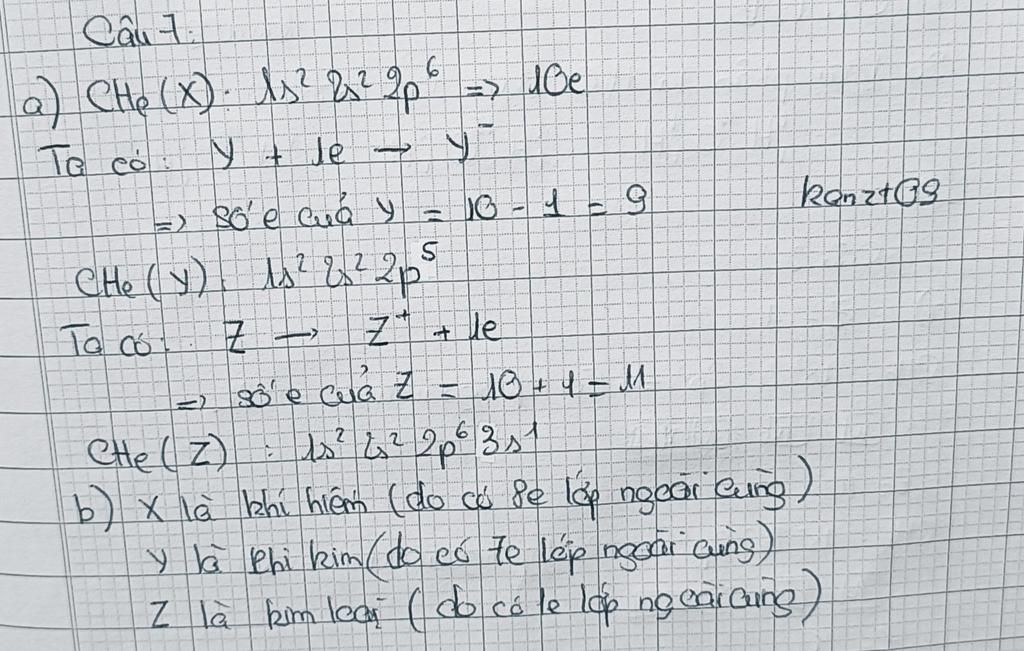 Câu 7:
a) CHe (X): 1s² 2s² 2p⁶ => 10e
Ta có: Y + 1e → Y⁻
=> số e của Y = 10 - 1 = 9
kanzt09
CHe (Y): 1s² 2s² 2p⁵
Ta có: Z → Z⁺ + 1e
=> số e của Z = 10 + 1 = 11
CHe (Z): 1s² 2s² 2p⁶ 3s¹
b) X là khí hiếm (do có 8e lớp ngoài cùng)
Y là phi kim (do có 7e lớp ngoài cùng)
Z là kim loại (do có 1e lớp ngoài cùng)